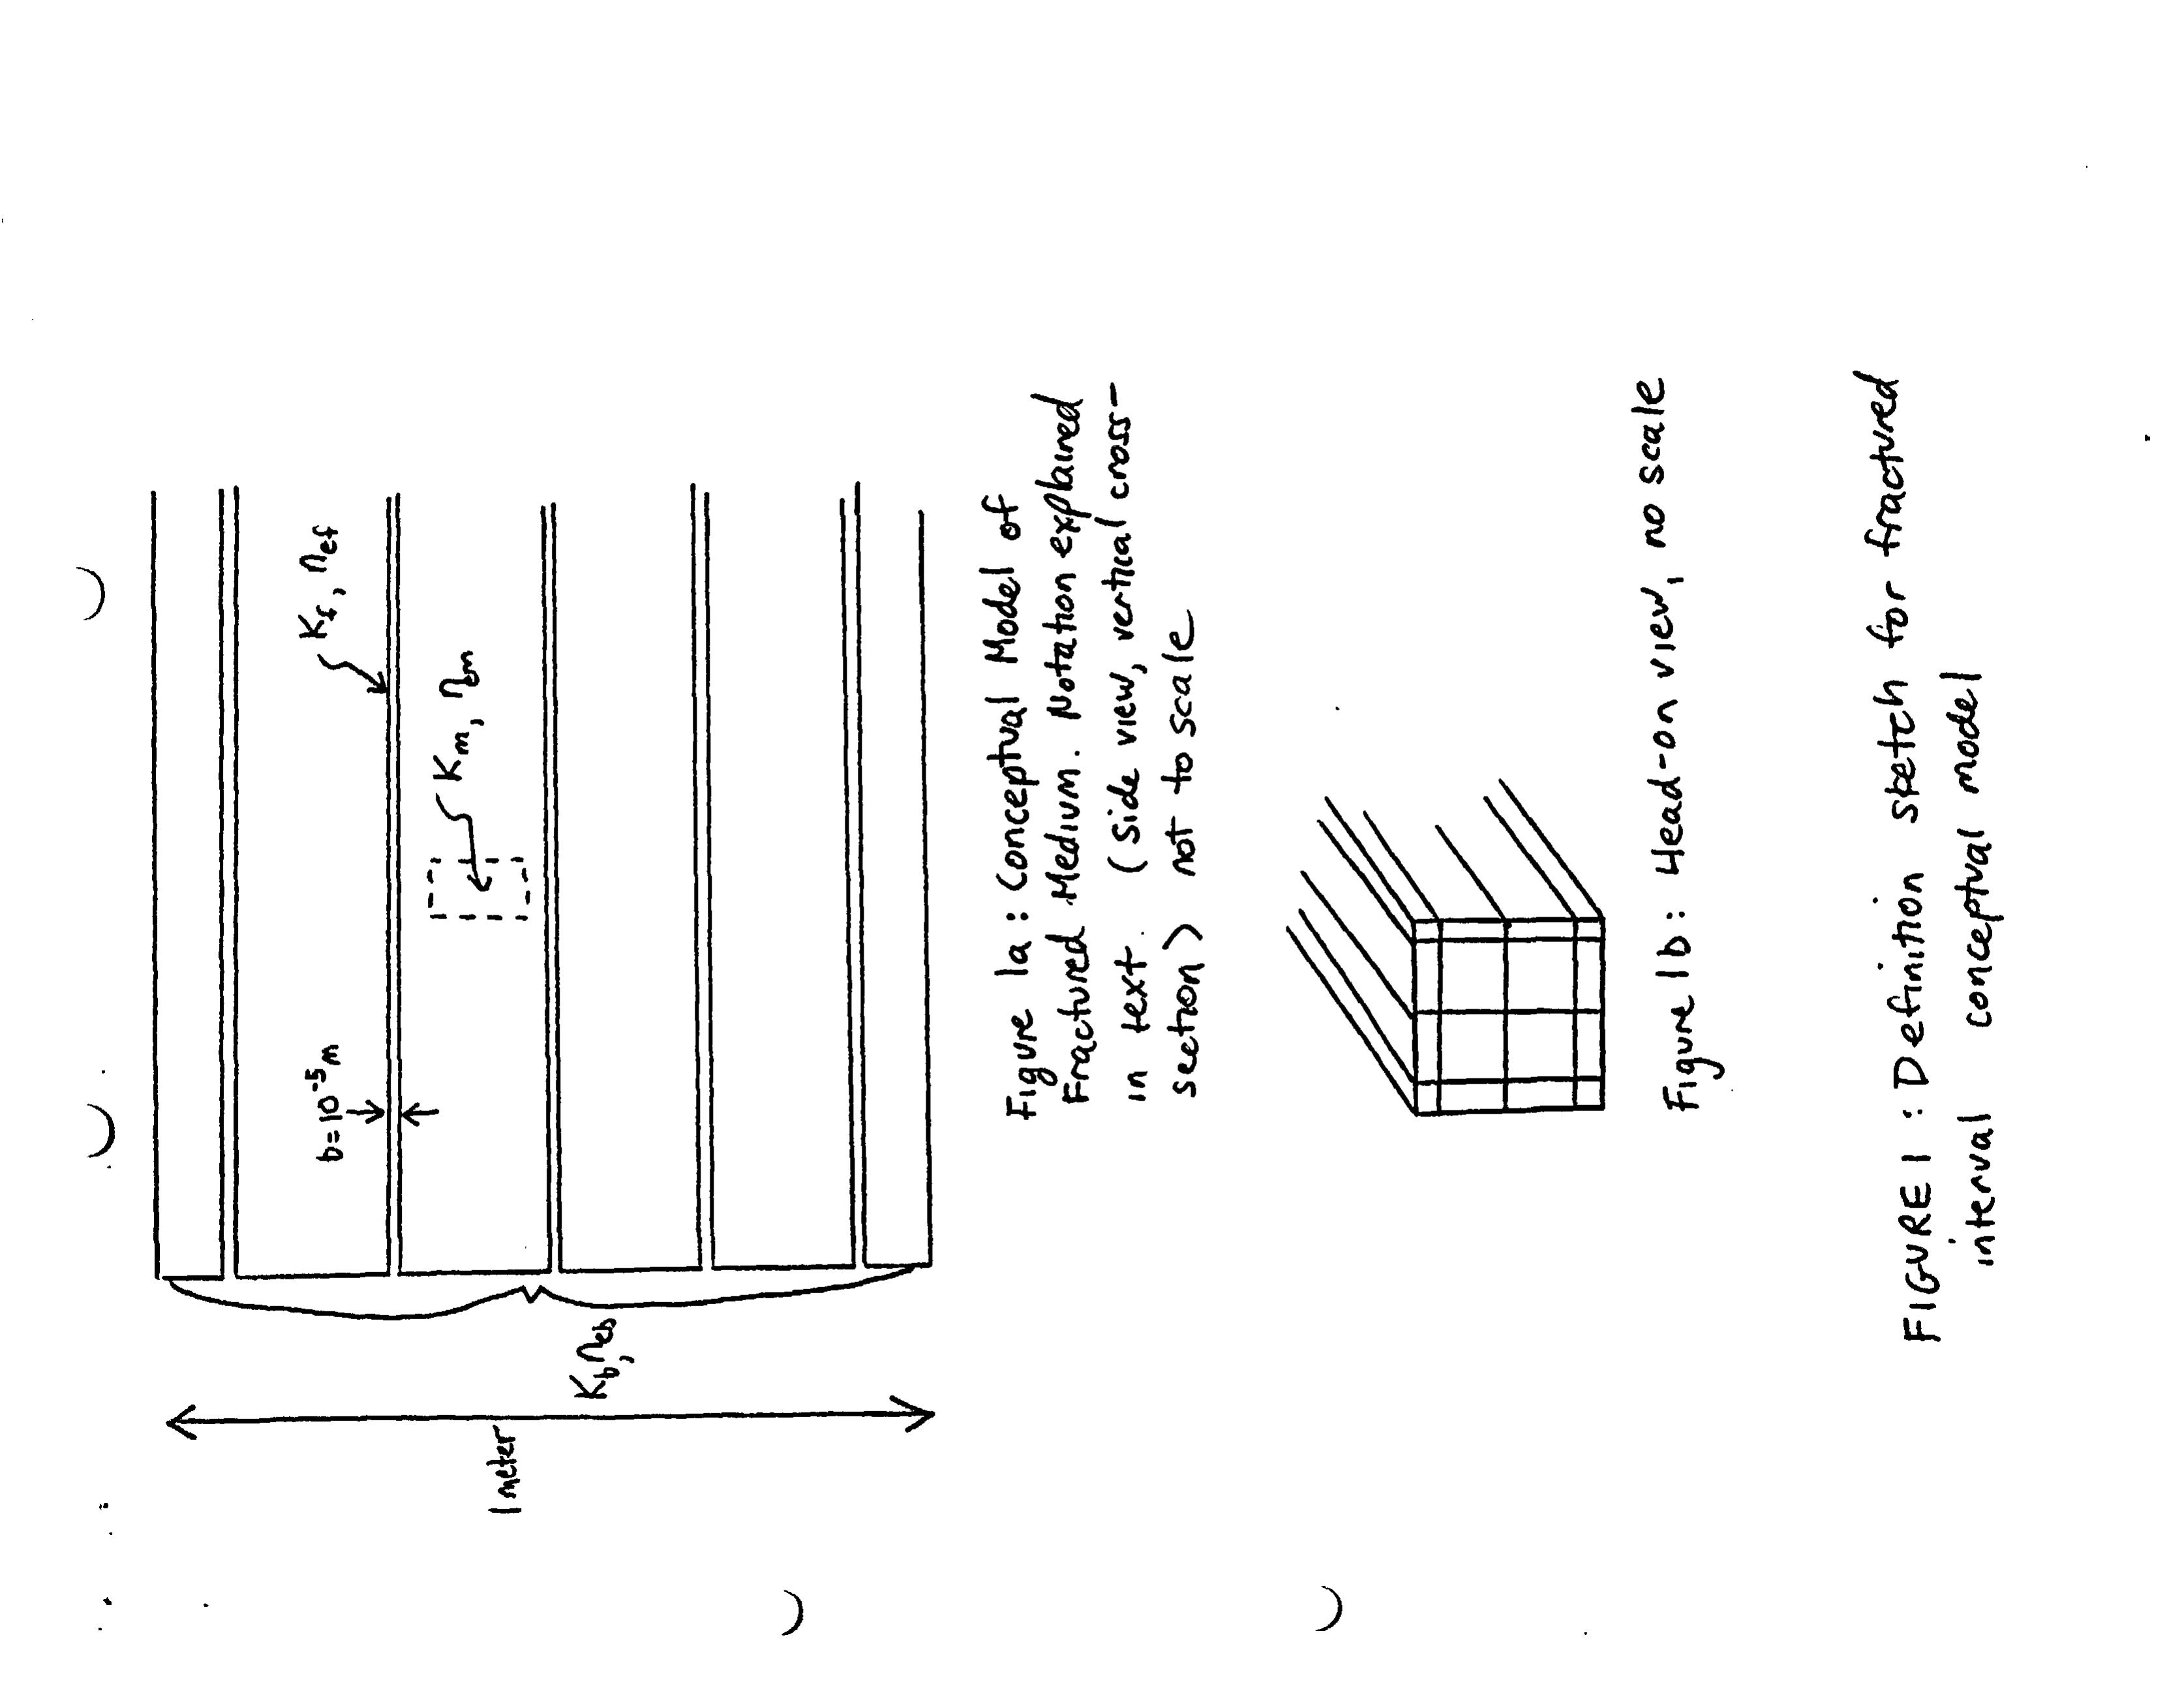 1 meter
K_b, n_eb
b=10^-5 m
K_f, n_ef
K_m, n_em
Figure 1a: Conceptual Model of
Fractured Medium. Notation explained
in text. (side view, vertical cross-
section) not to scale
Figure 1b: Head-on view, no scale
FIGURE 1: Definition sketch for fractured
interval conceptual model